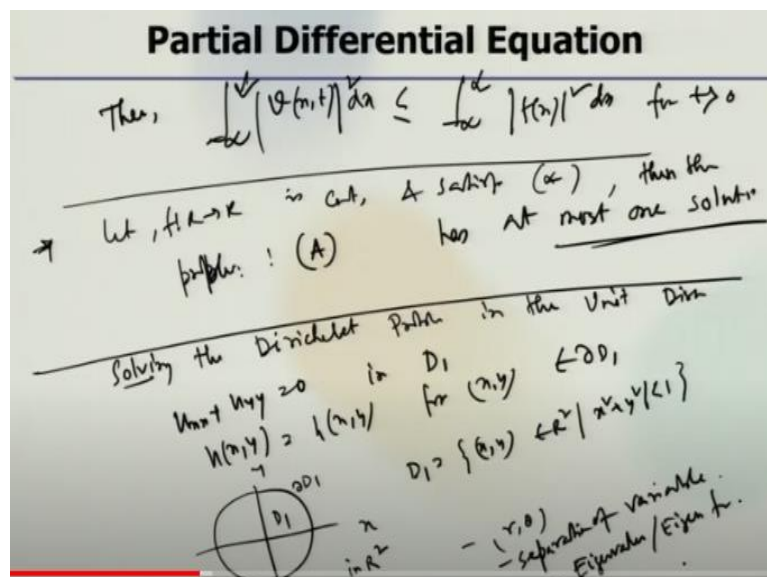 Partial Differential Equation
Then, ∫_{-∞}^{∞} |v(x,t)|² dx ≤ ∫_{-∞}^{∞} |f(x)|² dx for t>0
Let, f: R→R is cont, & satisfy (*), then the
problem: (A) has at most one solutio
Solving the Dirichelet Problem in the Unit Disc
u_xx + u_yy = 0 in D₁
u(x,y) = h(x,y) for (x,y) ∈ ∂D₁
D₁ = {(x,y) ∈ R² | x²+y² < 1}
y
∂D₁
D₁
x
in R²
- (r,θ)
- separation of variable.
Eigenvalue/Eigen fn.